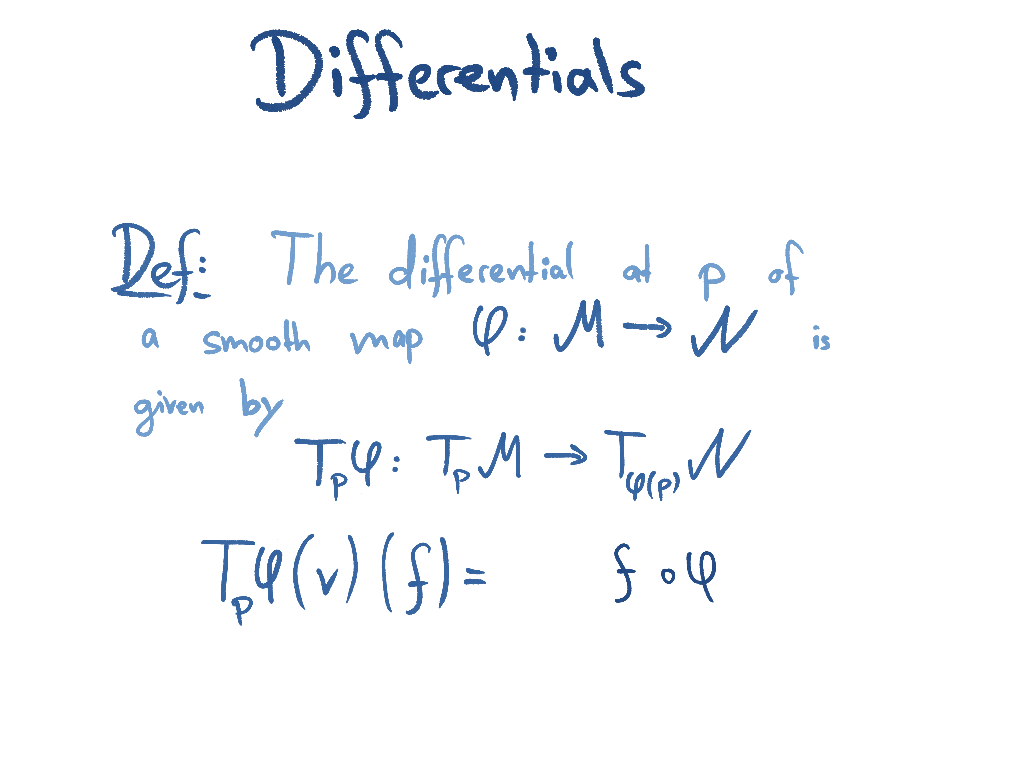 Differentials
Def: The differential at p of
a smooth map φ: M → N is
given by
Tₚφ: TₚM → T_φ(p) N
Tₚφ(v)(f) = f ∘ φ